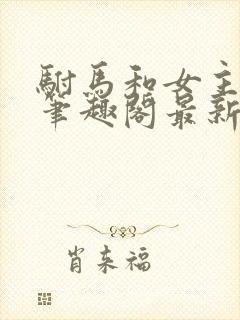 駙馬和女主
筆趣閣最新
肖来福